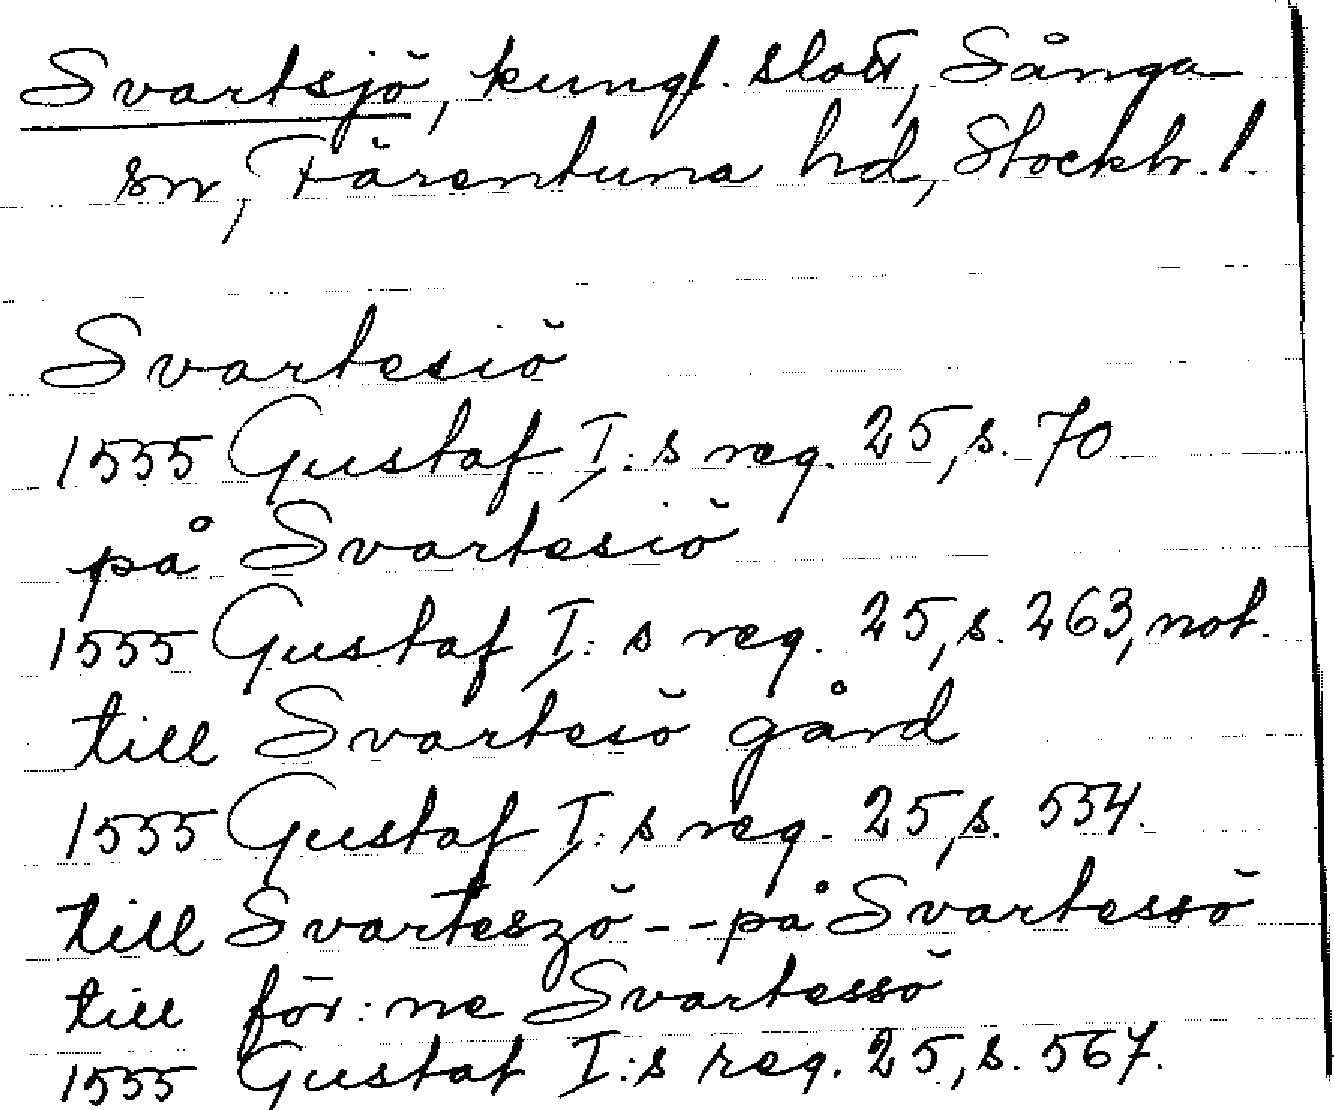 Svartsjö, kungl. slott, Sånga
sn, Färentuna hd, Stockh. l.
Svartesiö
1555 Gustaf I:s reg. 25, s. 70
på Svartesiö
1555 Gustaf I:s reg. 25, s. 263, not.
till Svartesö gård
1555 Gustaf I:s reg. 25, s. 554.
till Svarteszö -- på Svartessö
till för:ne Svartessö
1555 Gustaf I:s reg. 25, s. 567.